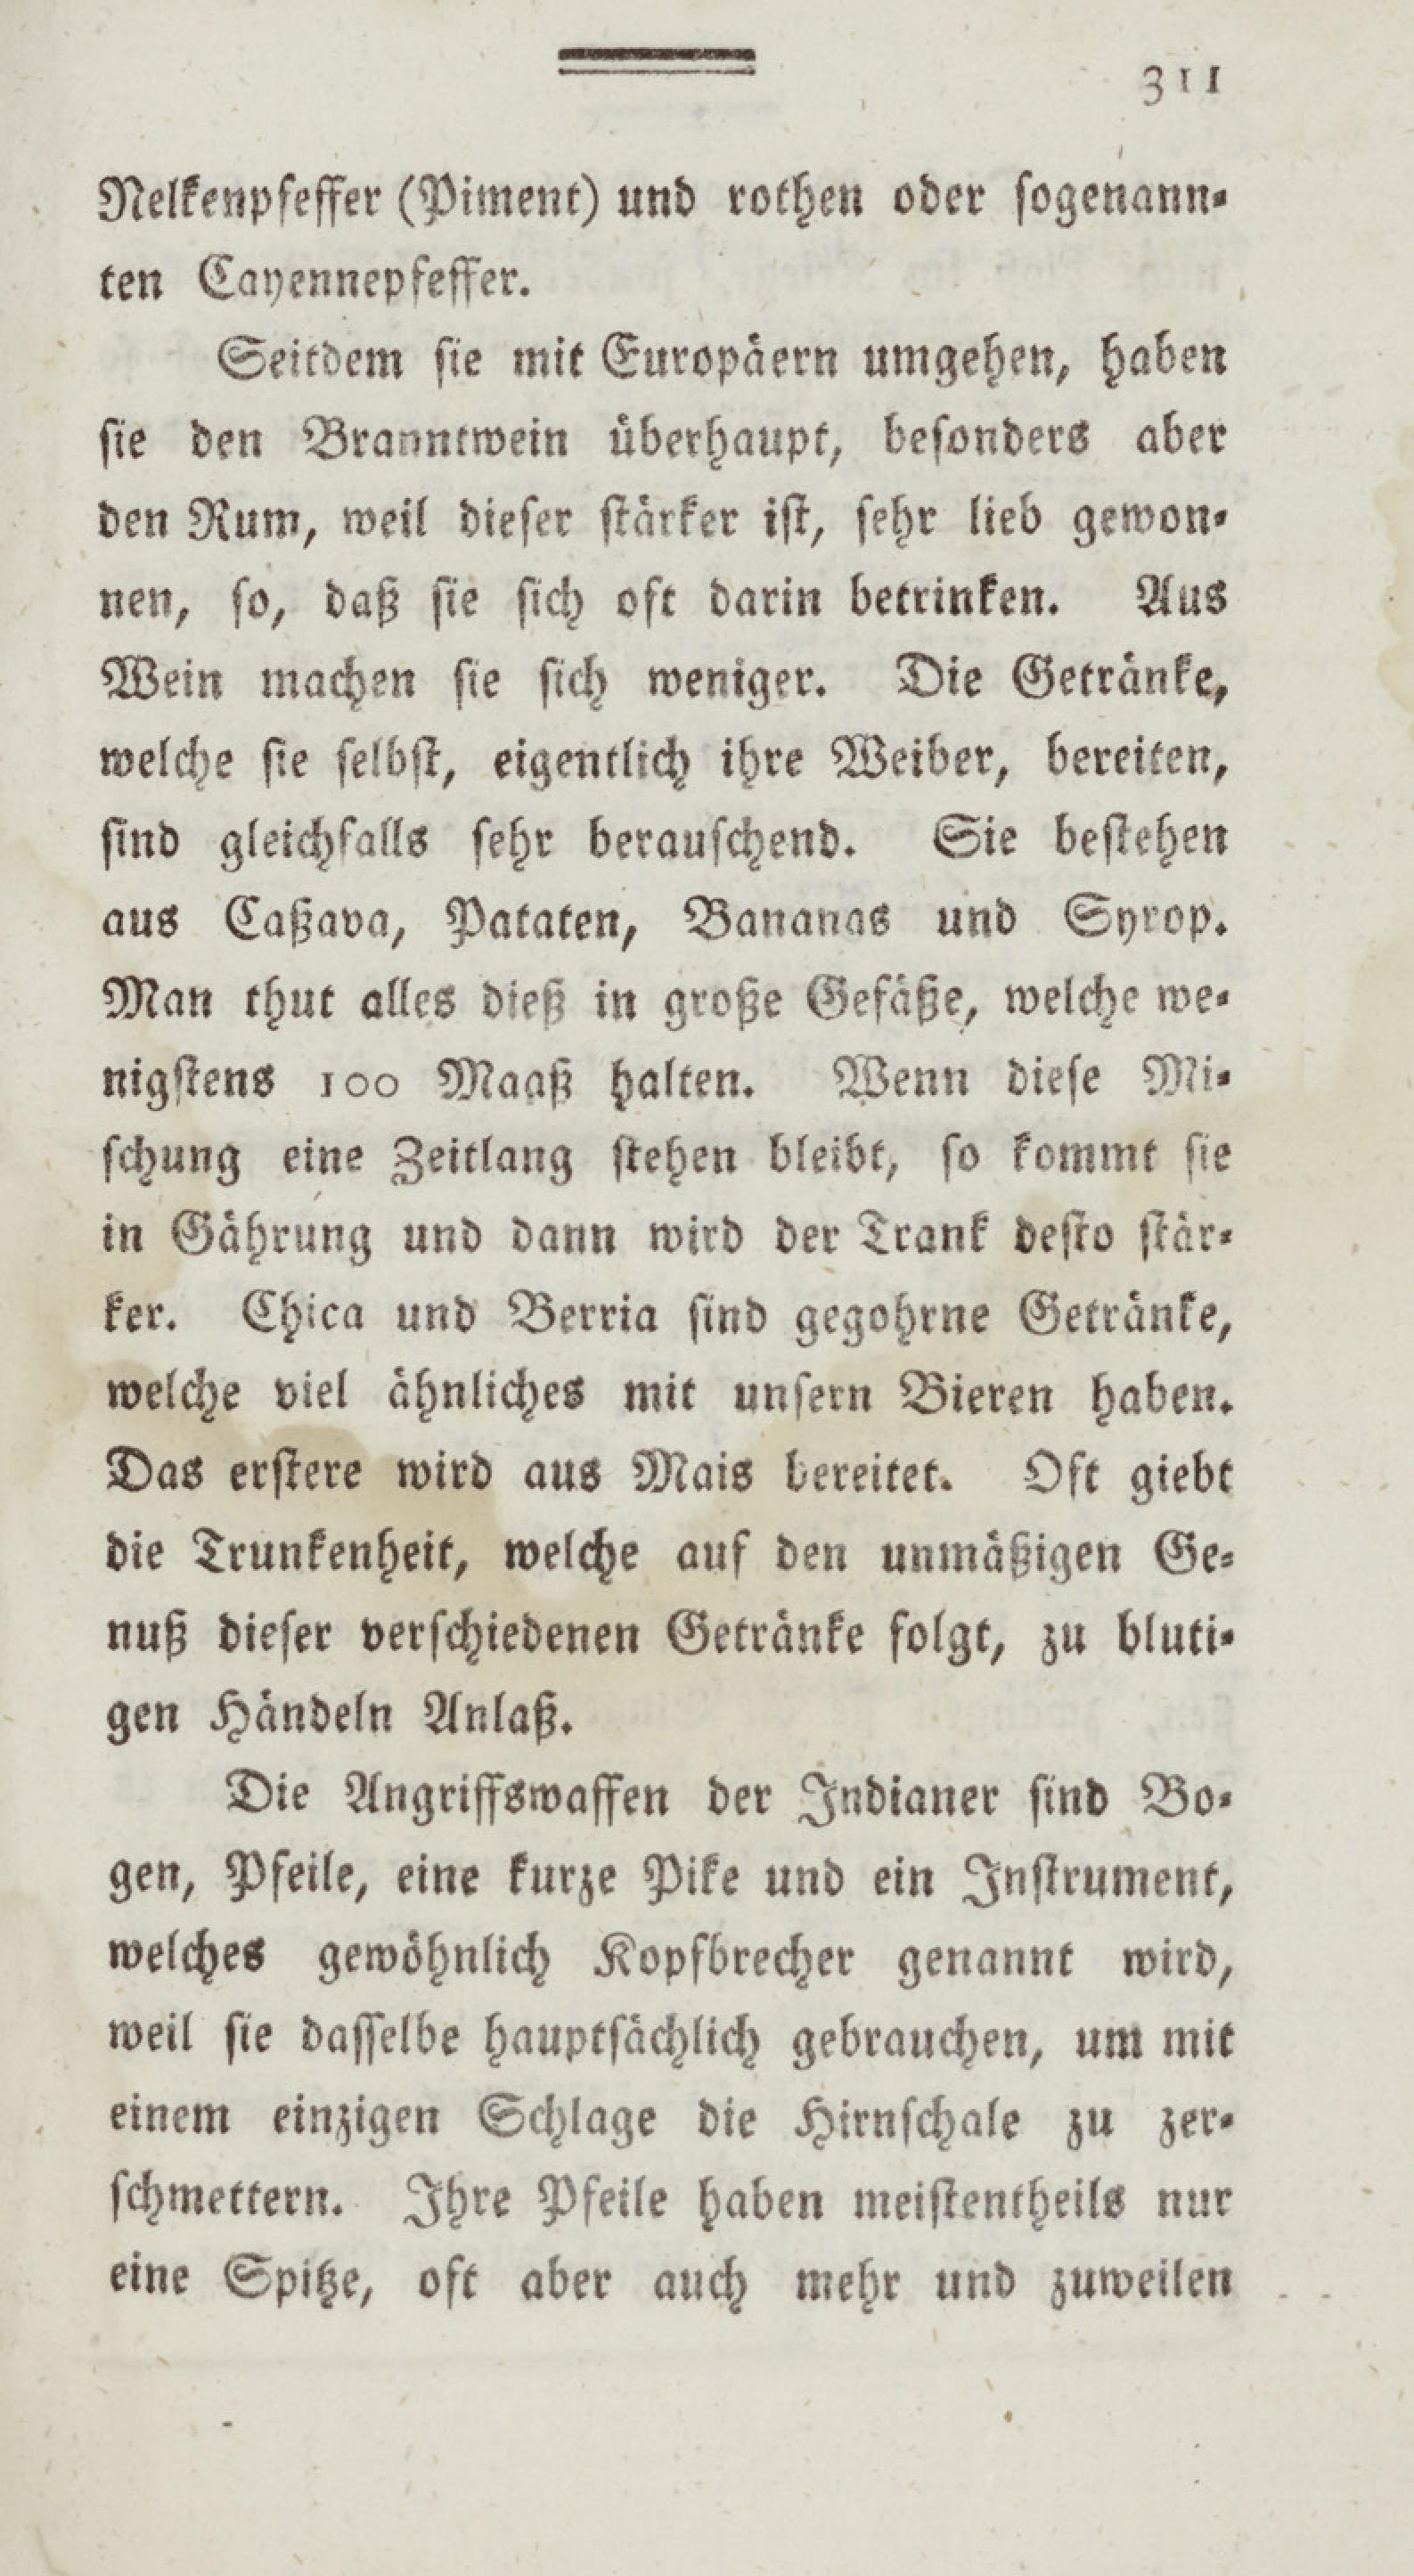 311
Nelkenpfeffer (Piment) und rothen oder sogenann-
ten Cayennepfeffer.
Seitdem sie mit Europäern umgehen, haben
sie den Branntwein überhaupt, besonders aber
den Rum, weil dieser stärker ist, sehr lieb gewon-
nen, so, daß sie sich oft darin betrinken. Aus
Wein machen sie sich weniger. Die Getränke,
welche sie selbst, eigentlich ihre Weiber, bereiten,
sind gleichfalls sehr berauschend. Sie bestehen
aus Caßava, Pataten, Bananas und Syrop.
Man thut alles dieß in große Gefäße, welche we-
nigstens 100 Maaß halten. Wenn diese Mi-
schung eine Zeitlang stehen bleibt, so kommt sie
in Gährung und dann wird der Trank desto stär-
ker. Chica und Berria sind gegohrne Getränke,
welche viel ähnliches mit unsern Bieren haben.
Das erstere wird aus Mais bereitet. Oft giebt
die Trunkenheit, welche auf den unmäßigen Ge-
nuß dieser verschiedenen Getränke folgt, zu bluti-
gen Händeln Anlaß.
Die Angriffswaffen der Indianer sind Bo-
gen, Pfeile, eine kurze Pike und ein Instrument,
welches gewöhnlich Kopfbrecher genannt wird,
weil sie dasselbe hauptsächlich gebrauchen, um mit
einem einzigen Schlage die Hirnschale zu zer-
schmettern. Ihre Pfeile haben meistentheils nur
eine Spitze, oft aber auch mehr und zuweilen